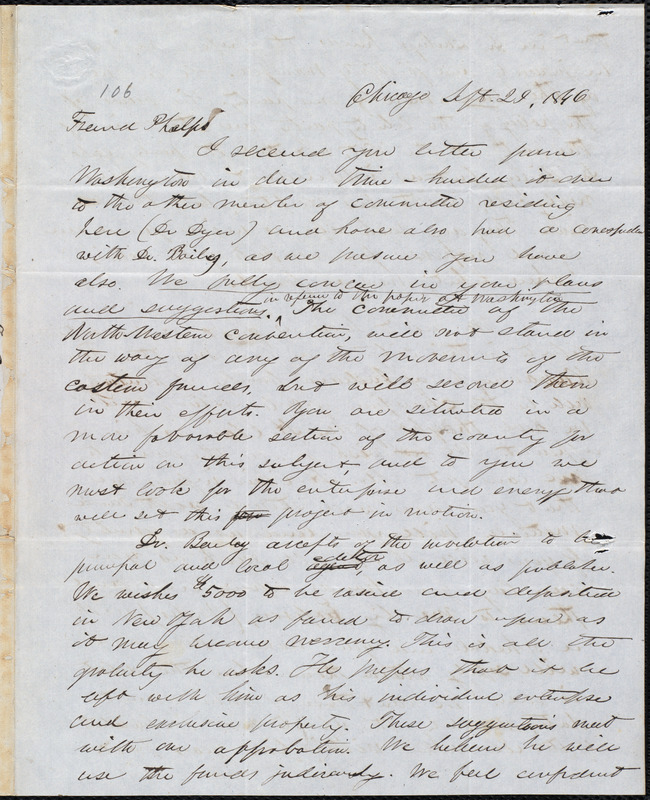 106
Chicago Sept. 29, 1846
Friend Phelps
I received you letter from
Washington in due time – handed it over
to the other member of committee residing
here (Dr Dyer) and have also had a
with Dr. Bailey, as we presume you have
also. We fully concur in your plans
and suggestions, in reference to the paper at Washington. The committee of the
North-Western convention, will not stand in
the way of any of the movements of the
eastern friends, but will second them
in their efforts. You are situated in a
more favorable section of the country for
action on this subject and to you we
must look for the enterprise and energy that
will set this project in motion.
Dr. Bailey accepts of the invitation to be
principal and local editor, as well as publisher.
He wishes $5000 to be raised and deposited
in New York as fund to draw upon as
it may become necessary. This is all the
gratuity he asks. He prefers that it be
left with him as his individual enterprise
and exclusive property. These suggestions meet
with our approbation. We believe he will
use the funds judiciously. We feel confident